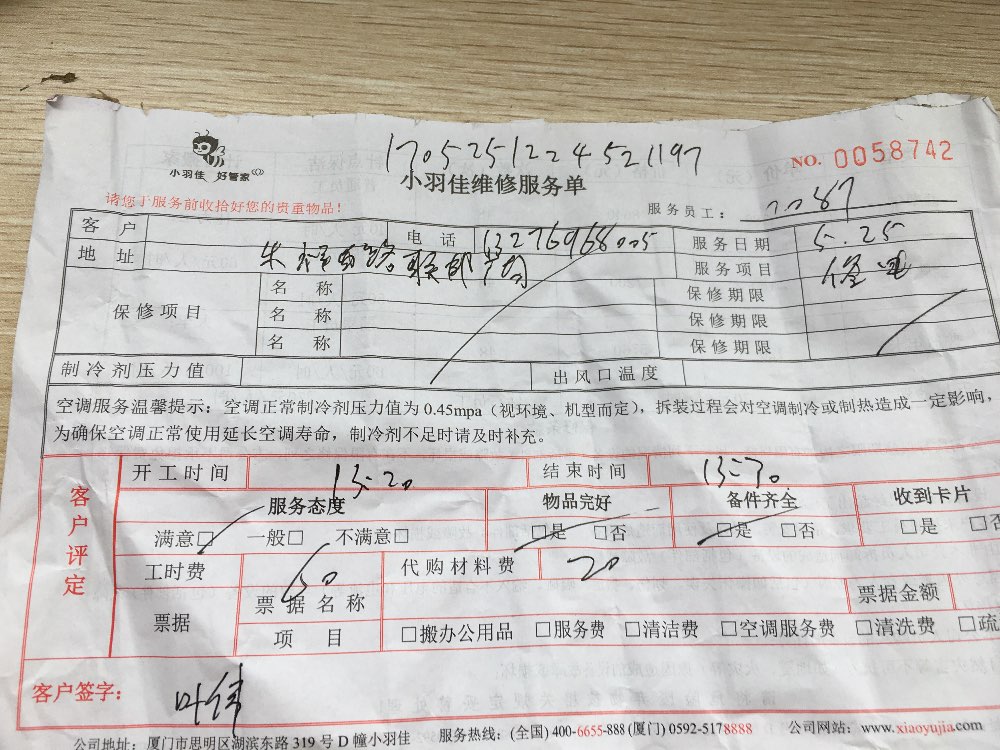 1705251224521197
NO. 0058742
小羽佳 好管家
小羽佳维修服务单
请您于服务前收拾好您的贵重物品!
服务员工:
客户 电话 13276968005 服务日期 5.25
地址 服务项目 修电
保修项目 名称 保修期限
名称 保修期限
名称 保修期限
制冷剂压力值 出风口温度
空调服务温馨提示:空调正常制冷剂压力值为 0.45mpa(视环境、机型而定),拆装过程会对空调制冷或制热造成一定影响,
为确保空调正常使用延长空调寿命,制冷剂不足时请及时补充。
客户评定
开工时间 15:20 结束时间
服务态度 物品完好 备件齐全 收到卡片
满意□ 一般□ 不满意□ □是 □否 □是 □否 □是 □否
工时费 50 代购材料费 20
票据 票据名称 票据金额
项目 □搬办公用品 □服务费 □清洁费 □空调服务费 □清洗费 □疏
客户签字: 叶伟
公司地址:厦门市思明区湖滨东路 319 号 D 幢小羽佳 服务热线:(全国) 400-6655-888 (厦门) 0592-5178888 公司网站:www.xiaoyujia.com